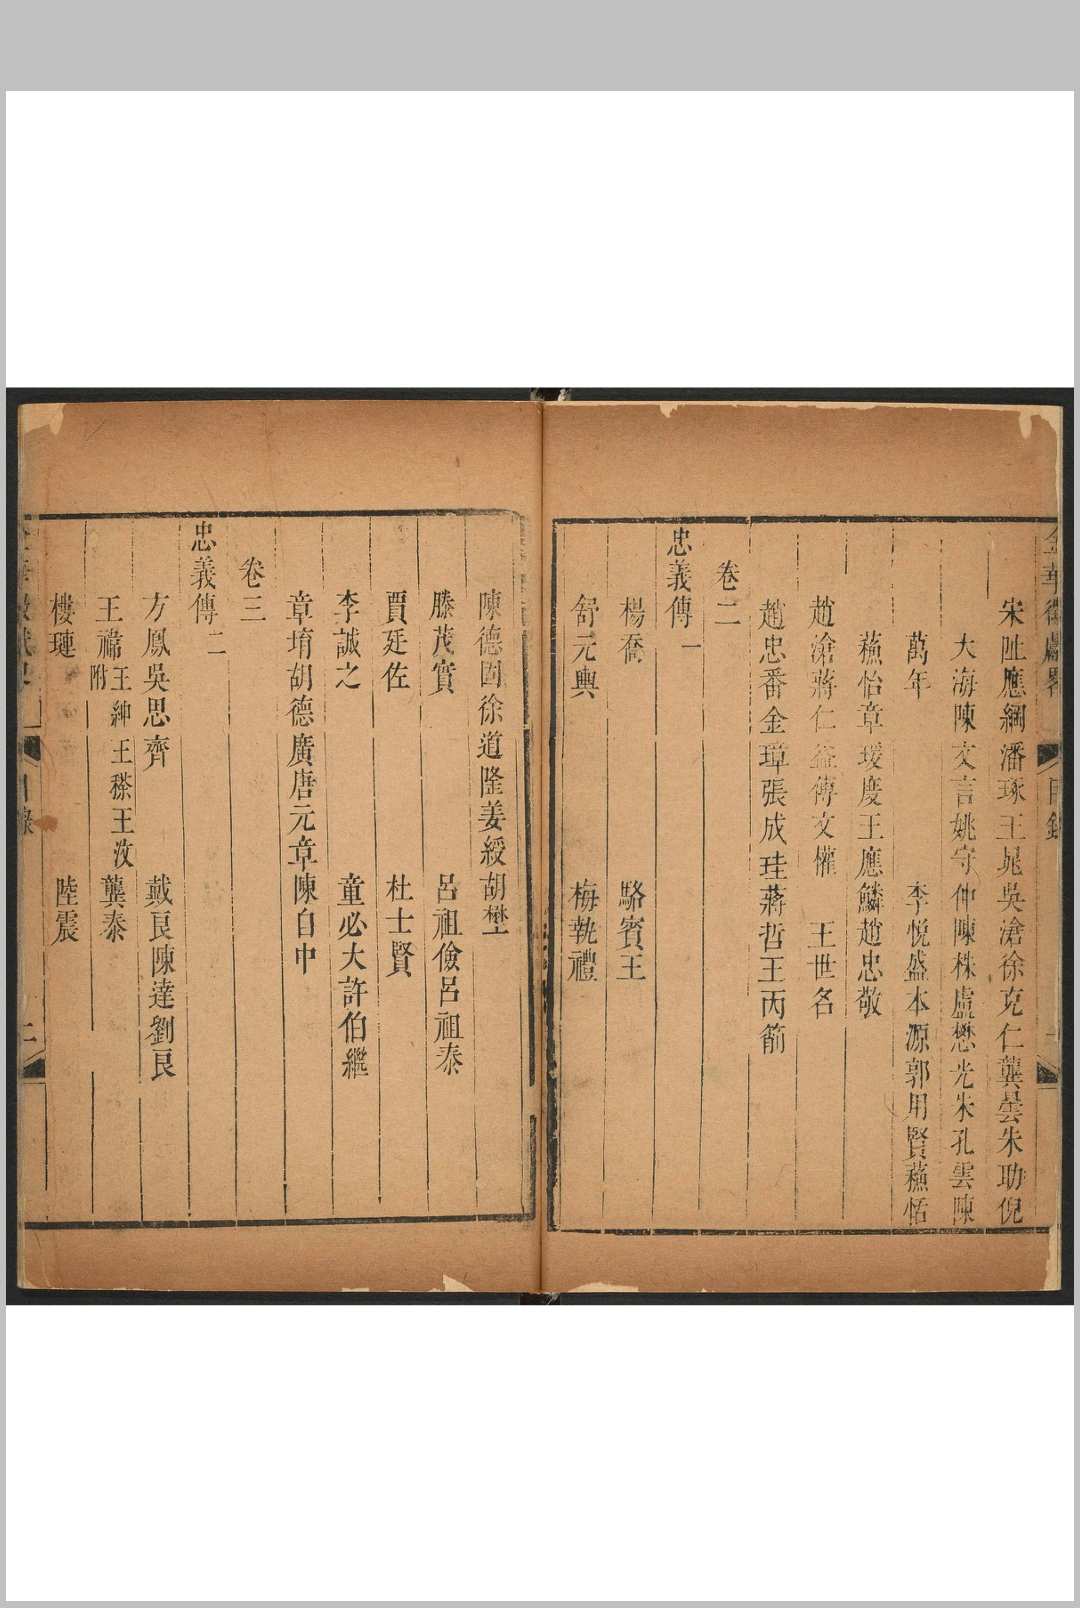 金華徵獻略 目錄
宋 應綱潘琢王晁吳滄徐克仁龔曇朱助倪
大海陳文言姚守仲陳株盧懋光朱孔雲陳
萬年 李悅盛本源郭用賢蘓恬
蘓怡章瑗慶王應鱗趙忠敬
趙滄蔣仁益傅文權 王世名
趙忠番金璋張成珪蔣哲王丙
卷二
忠義傳一
楊喬 駱賓王
舒元輿 梅執禮
陳德固徐道隆姜綬胡
滕茂實 呂祖儉呂祖泰
賈廷佐 杜士賢
李誠之 童必大許伯繼
章堉胡德廣唐元章陳自中
卷三
忠義傳二
方鳳吳思齊 戴良陳達劉良
王禕附王紳王稌王汶 龔泰
樓璉 陸震